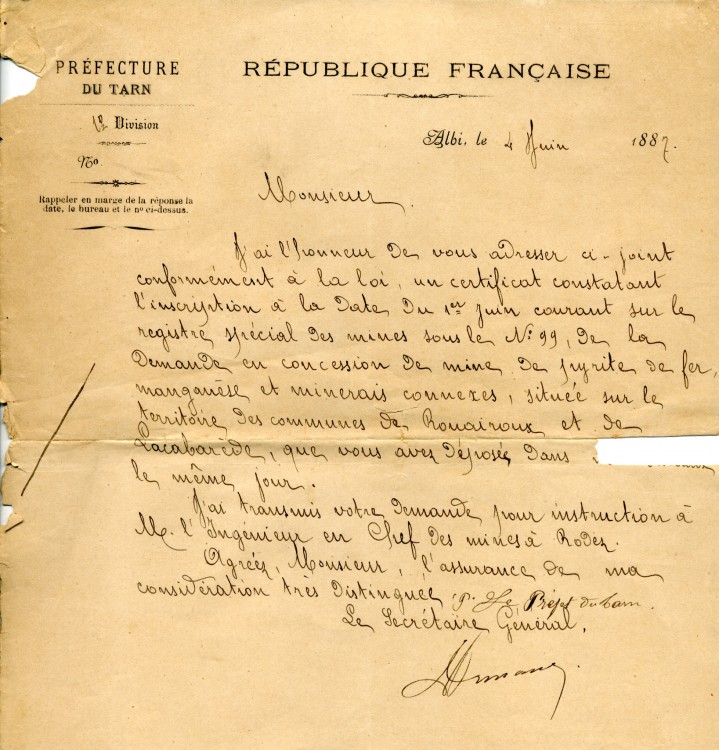 PRÉFECTURE
DU TARN
RÉPUBLIQUE FRANÇAISE
Division
No
Albi, le 4 Juin 1887.
Rappeler en marge de la réponse la
date, le bureau et le no ci-dessus.
Monsieur
J'ai l'honneur de vous adresser ci-joint
conformément à la loi, un certificat constatant
l'inscription à la date du 1er juin courant sur le
registre spécial des mines sous le No 99, de la
demande en concession de mine de pyrite de fer,
manganèse et minerais connexes, située sur le
territoire des communes de Rouairoux et de
Lacabarède, que vous avez déposée dans
le même jour.
J'ai transmis votre demande pour instruction à
M. l'Ingénieur en Chef des mines à Rodez.
Agréez, Monsieur, l'assurance de ma
considération très distinguée.
P. Le Préfet du Tarn.
Le Secrétaire Général,